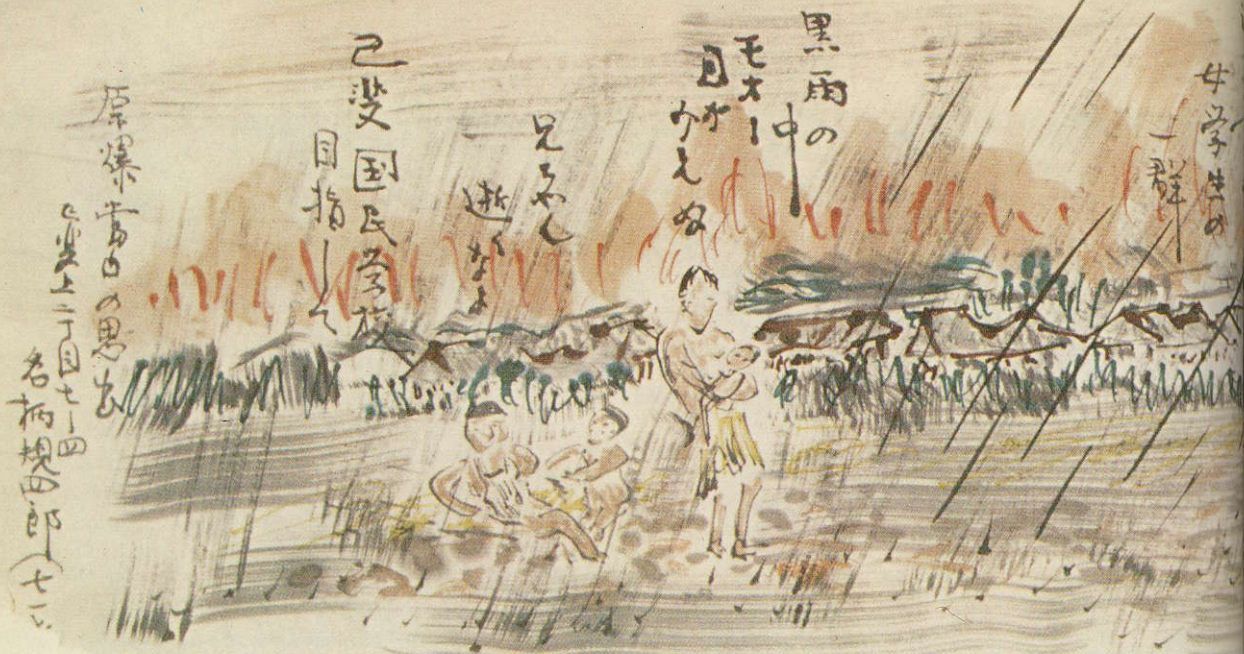 女学生の
一群
黒雨の
中
モオー
目が
みえぬ
兄ちやん
逝くなよ
己斐国民学校
目指して
原爆當日の思出
己斐上二丁目七ー四
名柄規四郎